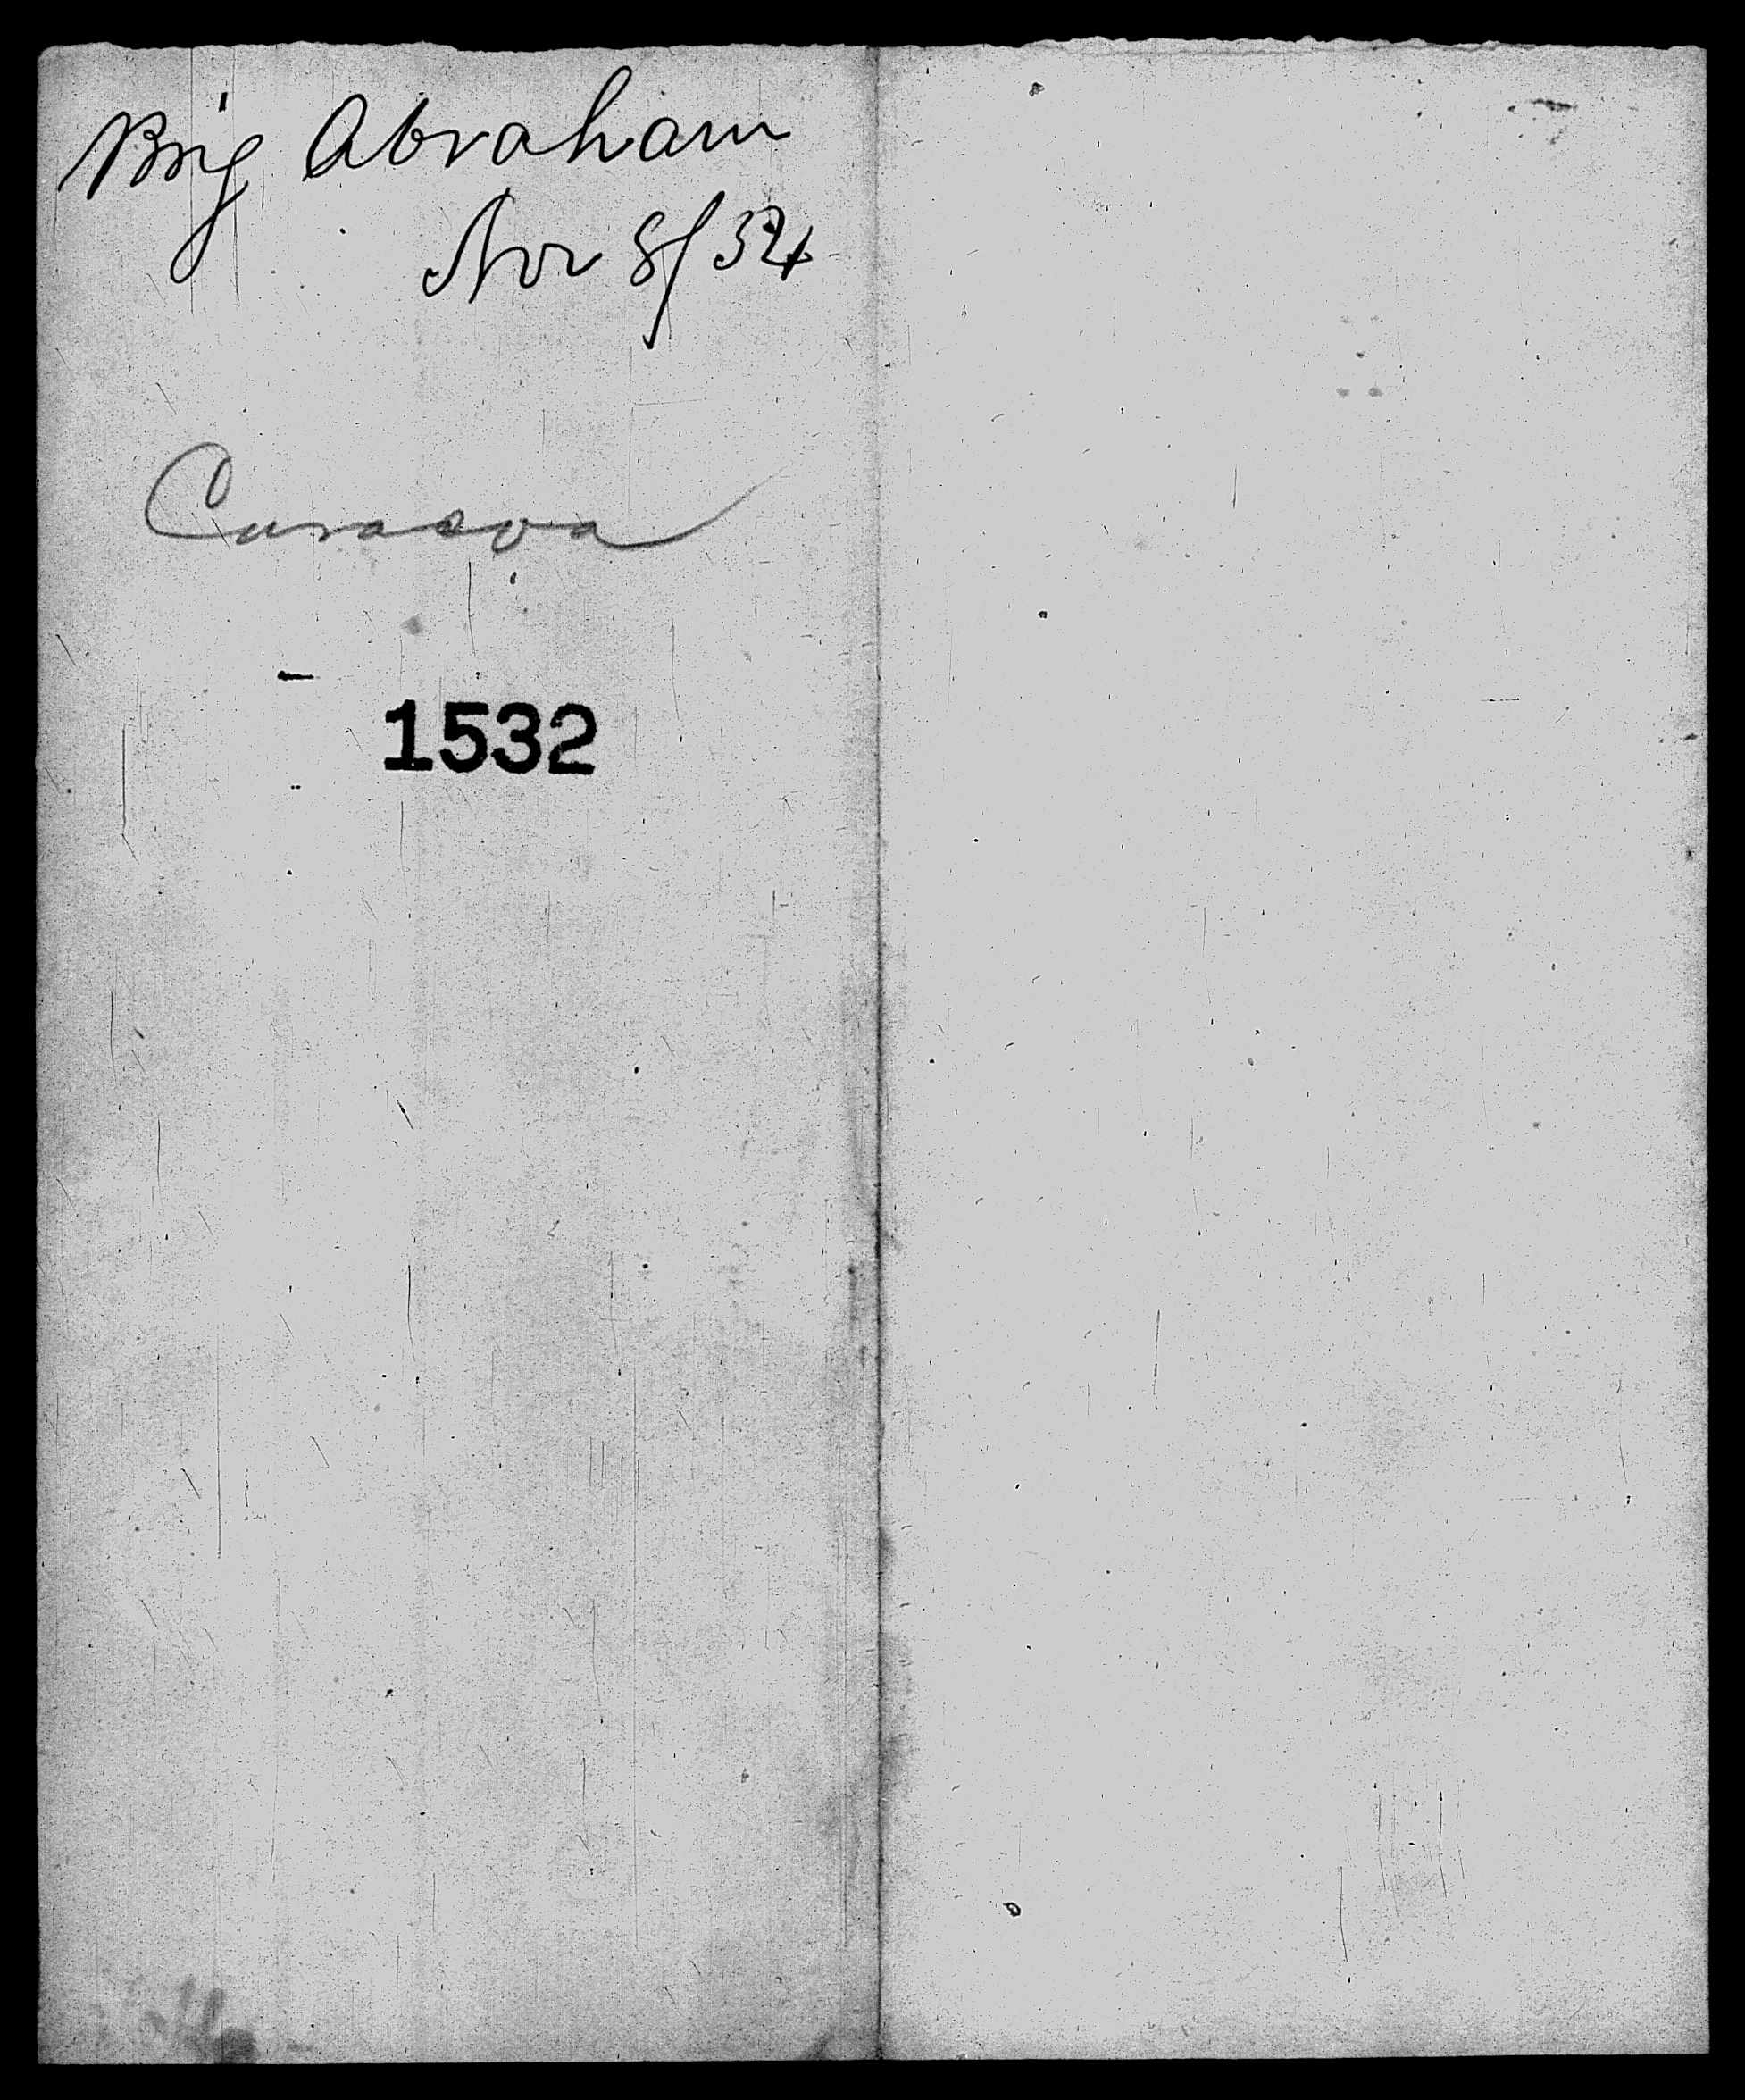 Brig Abraham
Nov 8/54
Curacoa
1532